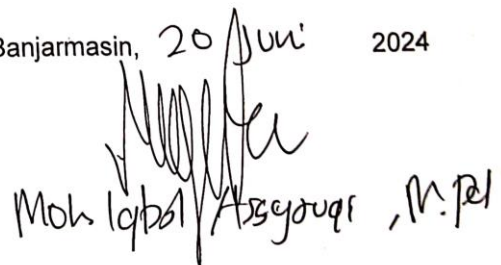 Banjarmasin, 20 Juni 2024
Moh. Iqbal Assyauqi, M.Pd